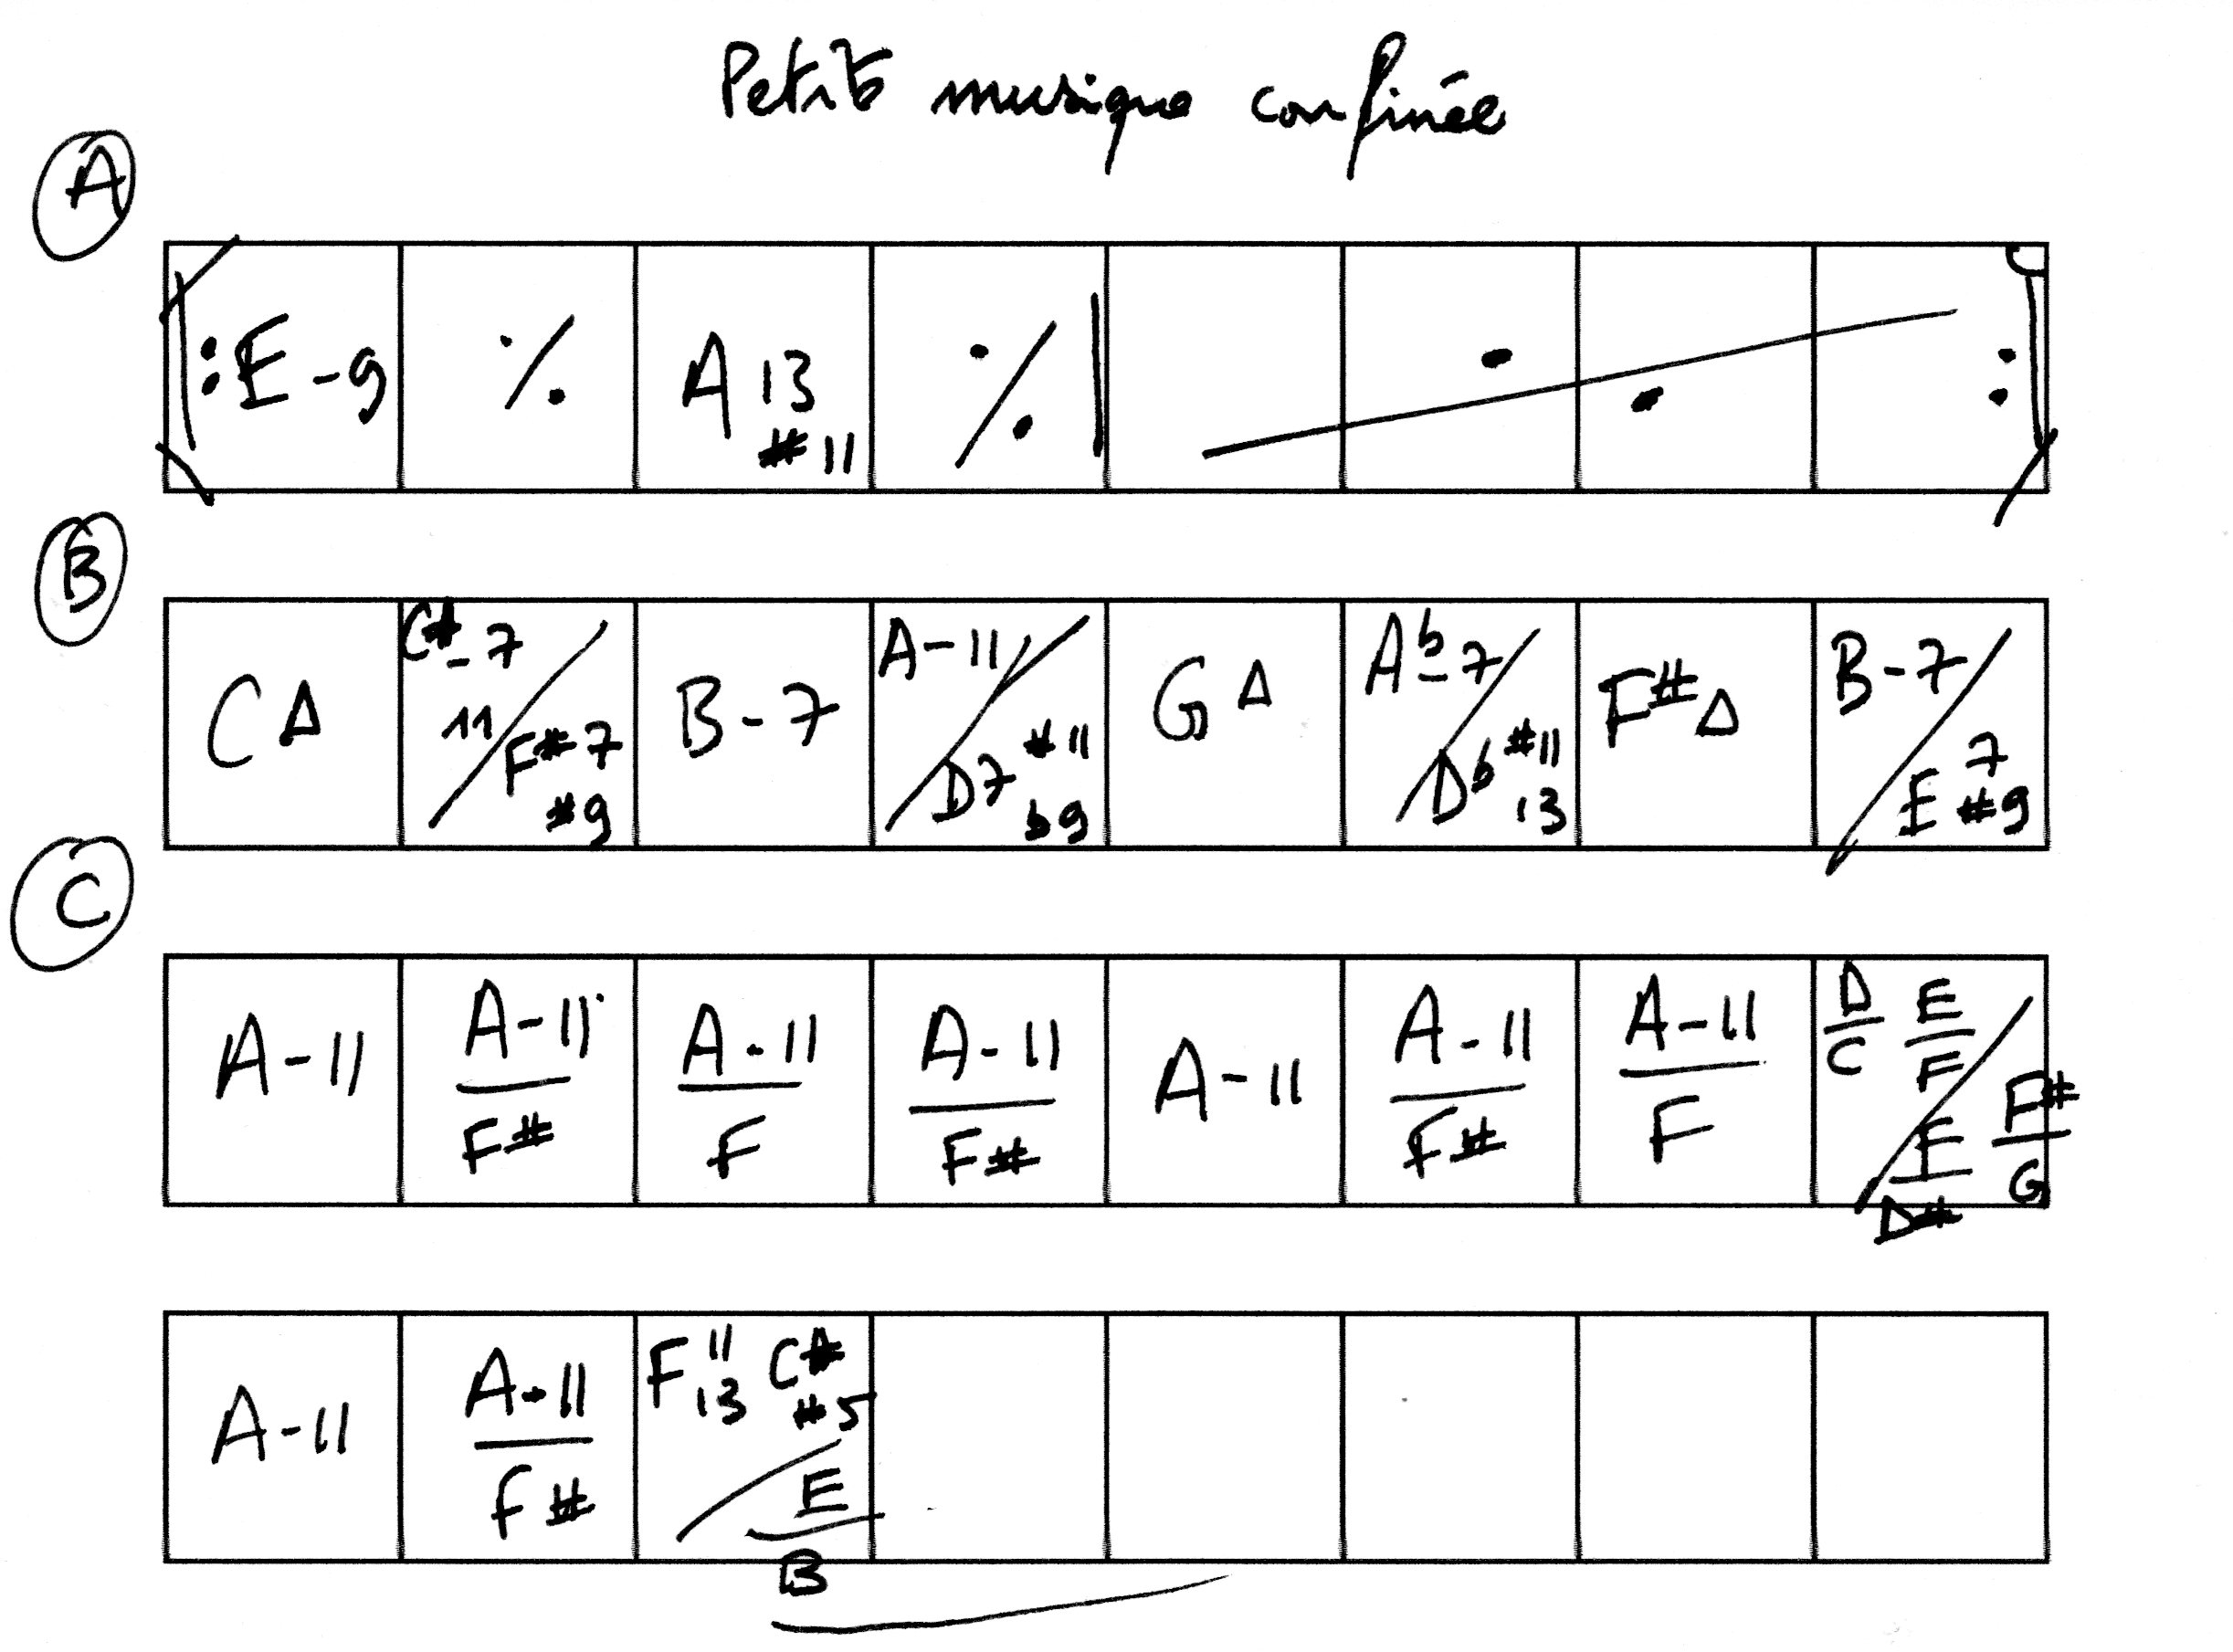 Petite musique confinée
A
|: E-9 | % | A13 #11 | % || % :|
B
C∆ | C#-7 11 / F#7 #9 | B-7 | A-11 / D7 #11 b9 | G∆ | Ab-7 / Db #11 13 | F#∆ | B-7 / E7 #9
C
A-11 | A-11/F# | A-11/F | A-11/F# | A-11 | A-11/F# | A-11/F | D/C E/F / E/D# F#/G
A-11 | A-11/F# | F 11 13 C# #5 / E/B